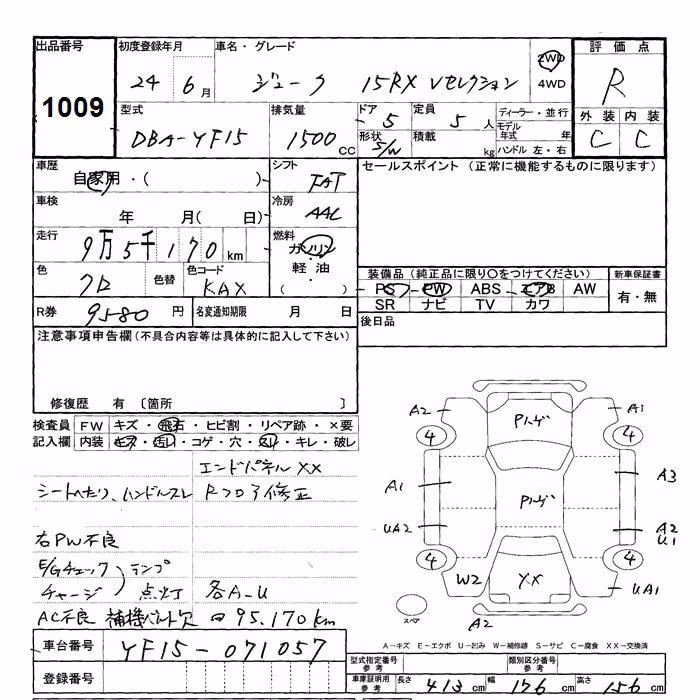 出品番号
1009
初度登録年月
24 6月
車名・グレード
ジューク 15RX Vセレクション
2WD
4WD
評価点
R
外装 内装
C C
型式
DBA-YF15
排気量
1500cc
ドア 5
形状 S/W
定員 5人
積載 kg
ディーラー・並行
モデル年式 年
ハンドル 左・右
車歴
自家用・( )
シフト
FAT
車検
年 月( 日)
冷房
AAC
走行
9万5千170km
燃料
ガソリン
軽油
( )
色
クロ
色替
色コード
KAX
R券
9580円
名変通知期限 月 日
セールスポイント (正常に機能するものに限ります)
装備品(純正品に限り○をつけてください)
PS PW ABS エアB AW
SR ナビ TV カワ
新車保証書
有・無
後日品
注意事項申告欄(不具合内容等は具体的に記入して下さい)
修復歴 有 〔箇所 〕
検査員記入欄
FW キズ・飛石・ヒビ割・リペア跡・×要
内装 キズ・汚レ・コゲ・穴・スリ・キレ・破レ
エンドパネルXX
シートへたり、ハンドルスレ
Rフロア修正
右PW不良
E/Gチェック
チャージ
ランプ点灯
各A-U
AC不良 補機ベルト欠
95,170km
車台番号
YF15-071057
登録番号
A2 Pハゲ A1
4 4
A1 Pハゲ A3
UA2 A2
U1
4 4
W2 XX UA1
スペア
A2
A-キズ E-エクボ U-凹み W-補修跡 S-サビ C-腐食 XX-交換済
型式指定番号 参考
類別区分番号 参考
車庫証明用 参考
長さ 413cm 幅 176cm 高さ 156cm